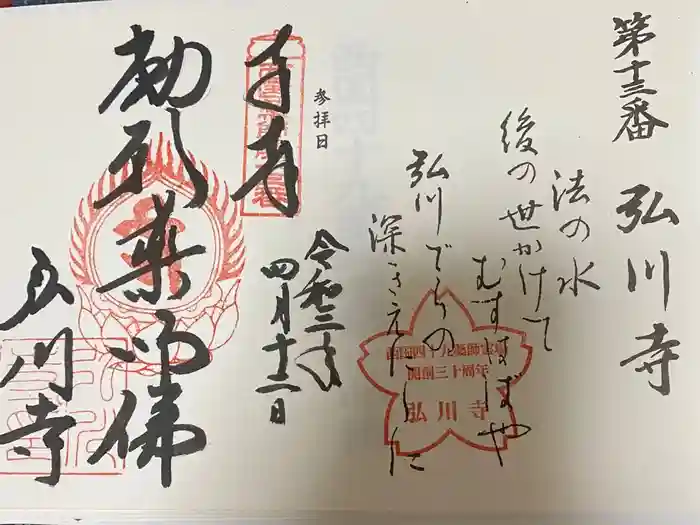 第十三番 弘川寺
法の水
むすばばや
後の世かけて
弘川でらの
深きえにしに
西国四十九薬師霊場
開創三十周年
弘川寺
参拝日
令和三年
四月十二日
奉拝
勅願 薬师佛
弘川寺